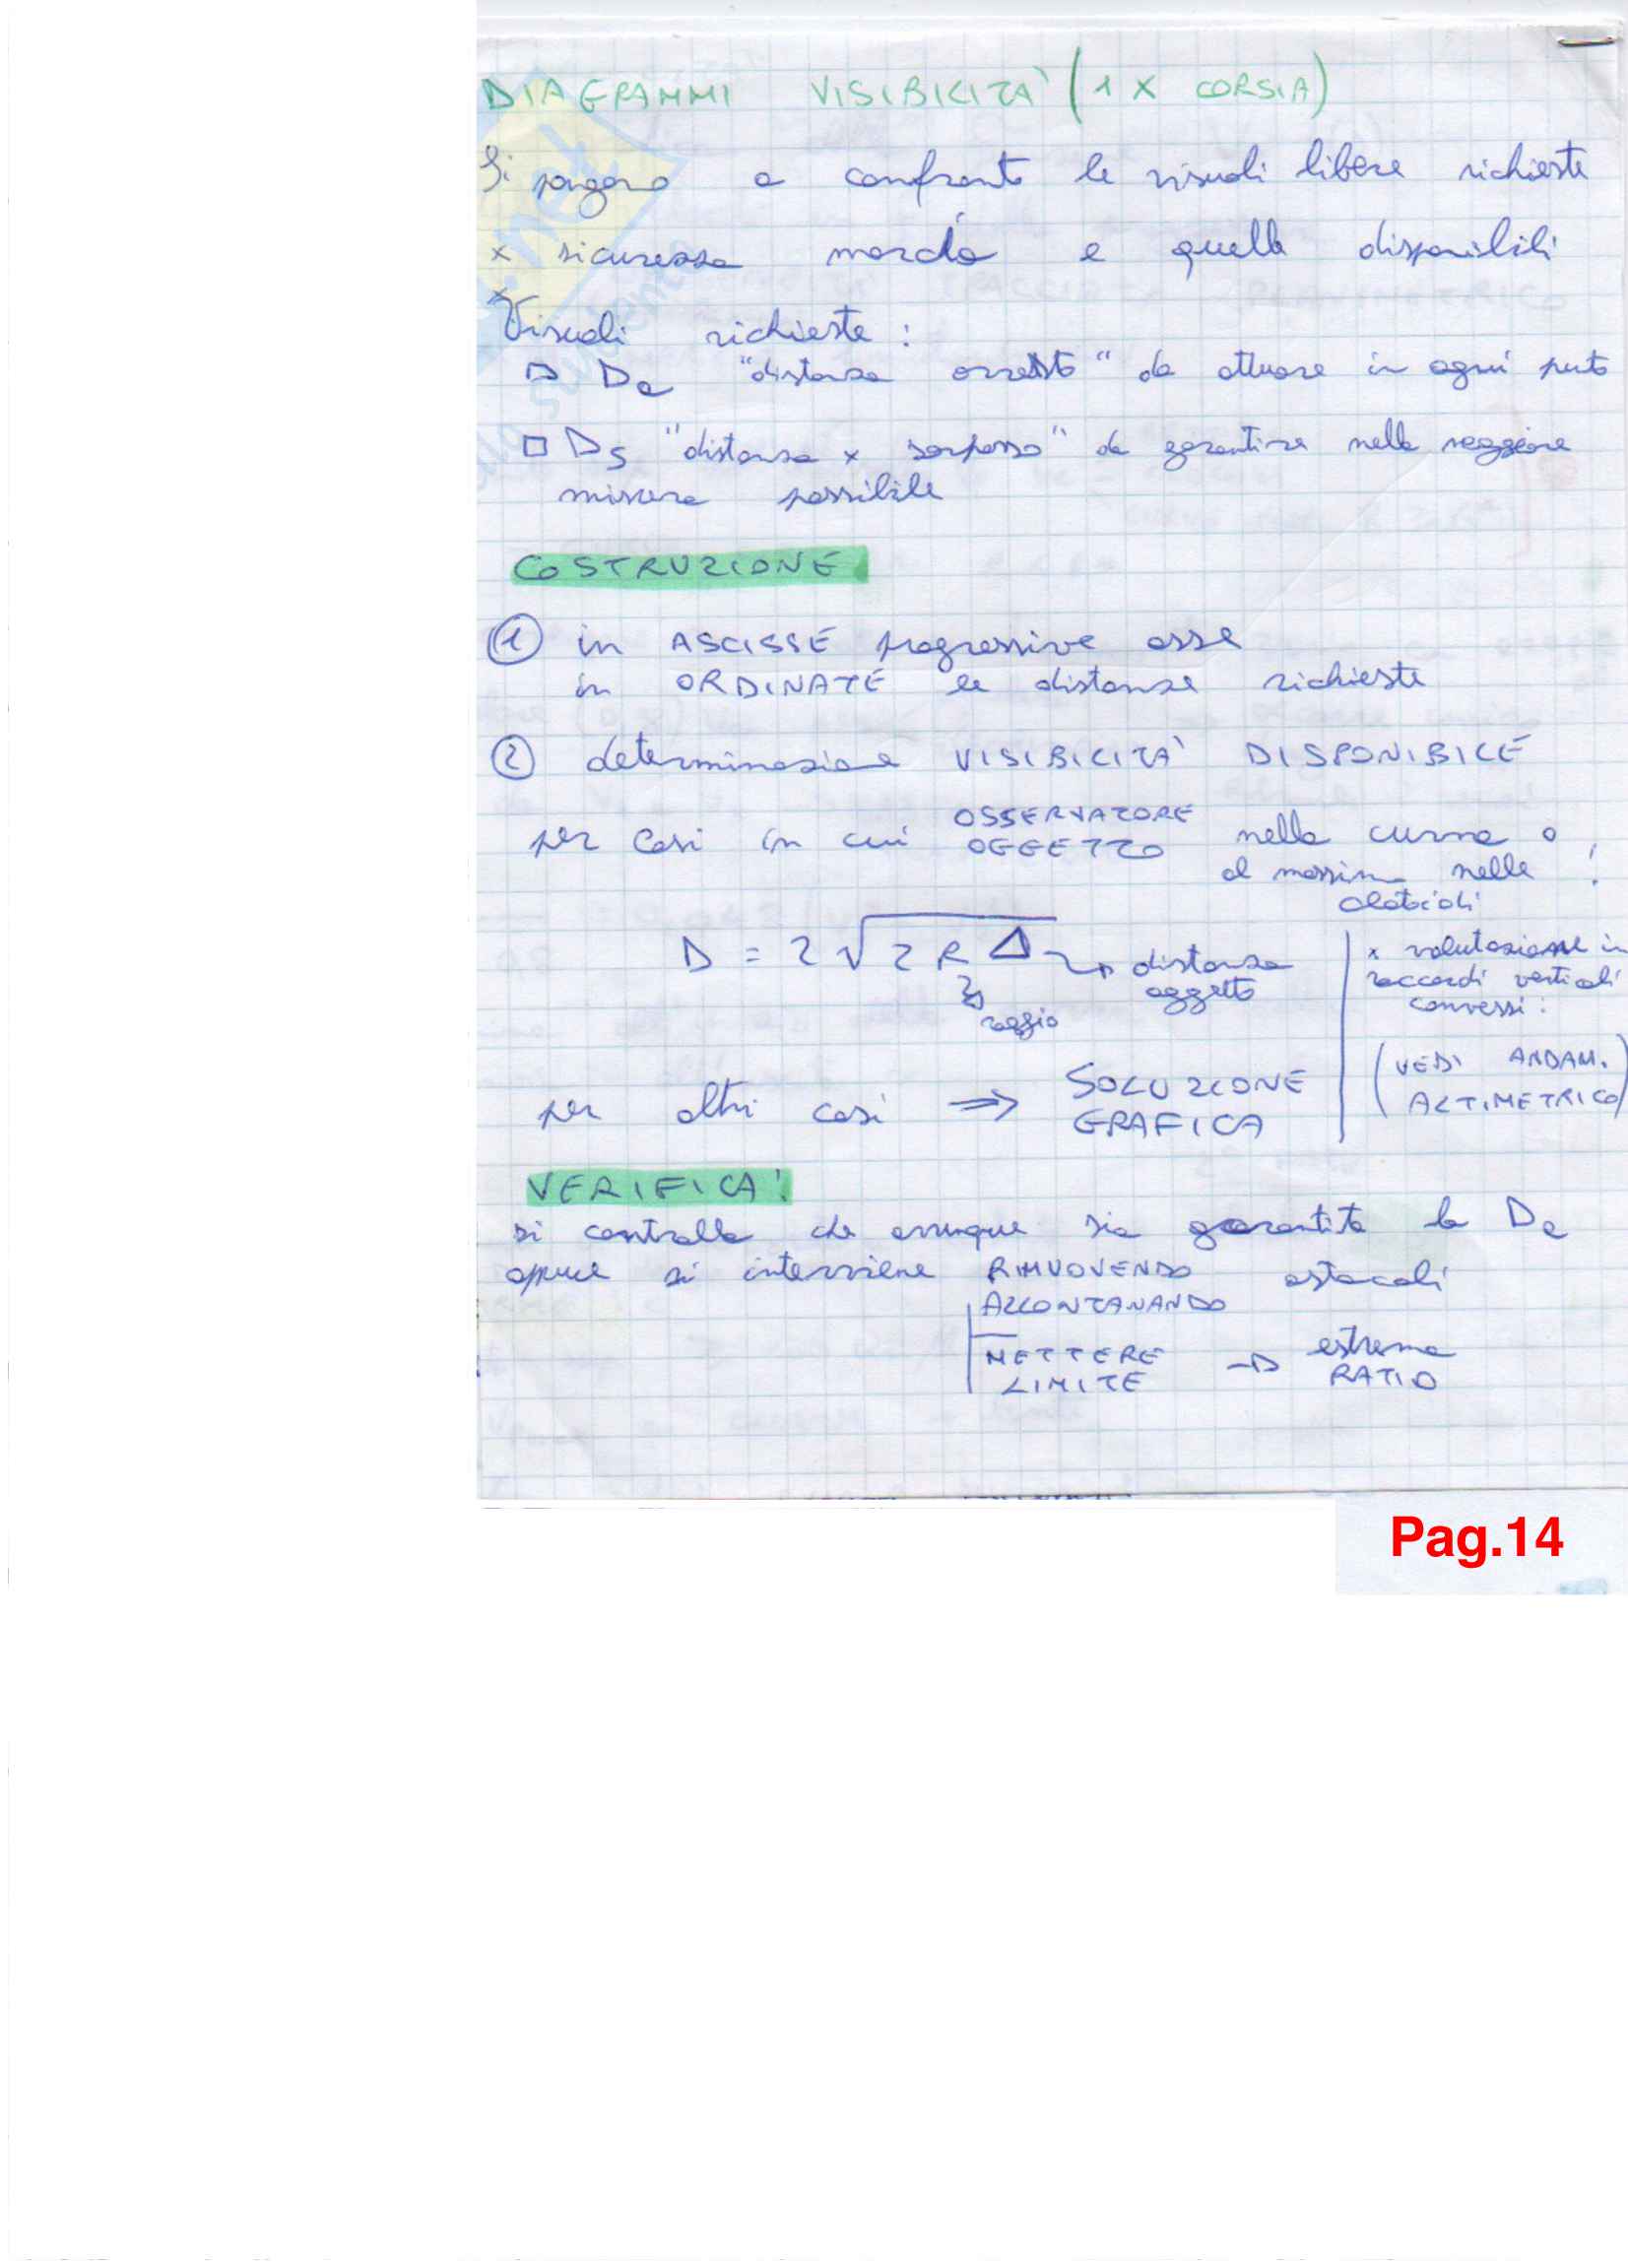 DIAGRAMMI VISIBILITÀ (1 X CORSIA)
Si pongono a confronto le visuali libere richieste
x sicurezza marcia e quelle disponibili
Visuali richieste:
Da "distanza arresto" da attuare in ogni punto
DS "distanza x sorpasso" da garantire nella maggiore
misura possibile
COSTRUZIONE
① in ASCISSE progressive asse
in ORDINATE le distanze richieste
② determinazione VISIBILITÀ DISPONIBILE
per casi in cui OSSERVATORE OGGETTO nella curva o
al massimo nelle
clotoidi
!
D = 2√2RΔ → distanza
oggetto
raggio
x valutazione in
raccordi verticali
convessi:
(VEDI ANDAM.
ALTIMETRICO)
per altri casi ⇒ SOLUZIONE
GRAFICA
VERIFICA:
si controlla che ovunque sia garantita la Da
oppure si interviene RIMUOVENDO ostacoli
ALLONTANANDO
METTERE
LIMITE → estrema
RATIO
Pag.14